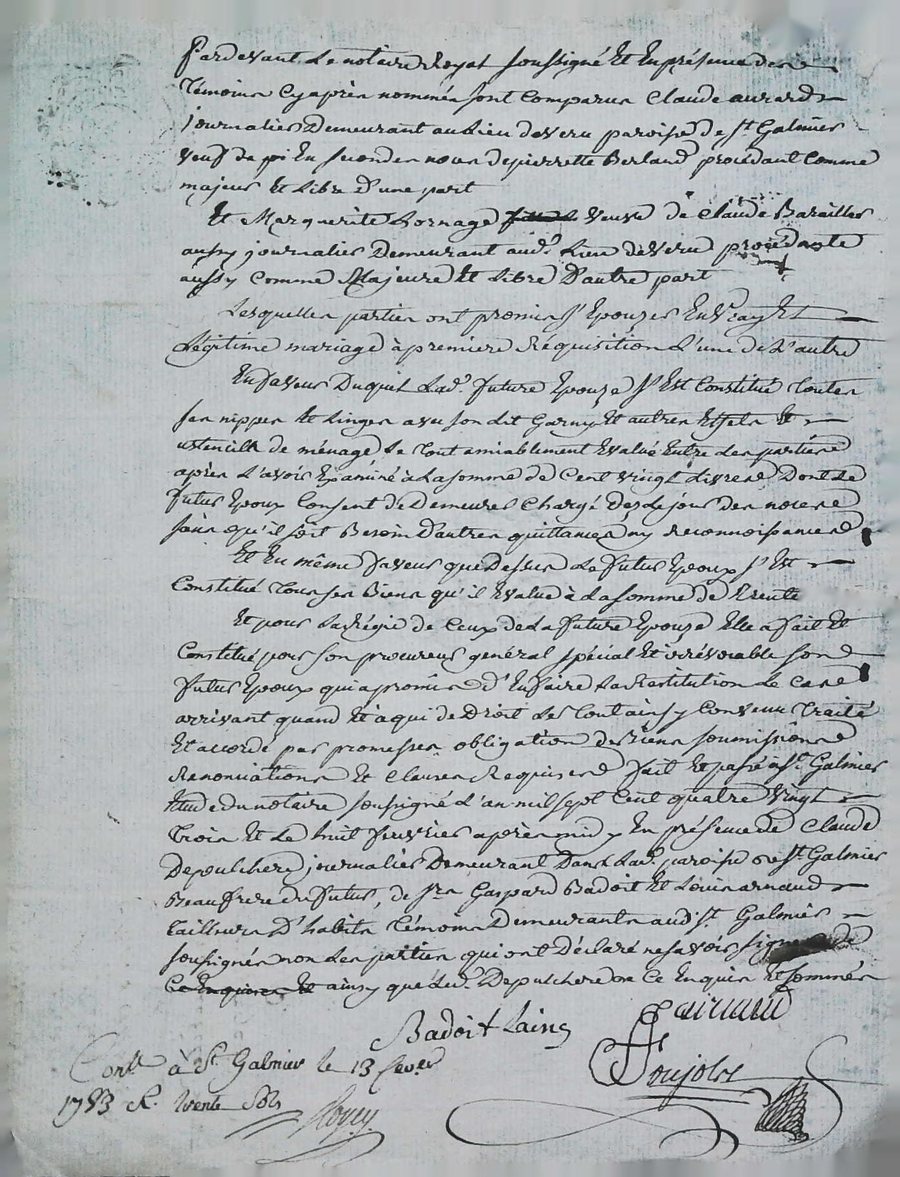 Pardevant Le notaire Royal soussigné Et En présence des
témoins Cyaprès nommés sont Comparus Claude aurard
journalier Demeurant au Lieu de veru paroisse de St Galmier
veuf de En secondes noces de pierrette Berland procédant Comme
majeur Et Libre d'une part
Et Marguerite Bornage veuve de Claude Barailler
aussy journalier Demeurant aud.t Lieu de veru procédante
aussy Comme Majeure Et Libre D'autre part
Lesquelles parties ont promis s'Epouzer En vray Et
Légitime mariage à première Réquisition L'une de L'autre
En faveur Duquel Lad.e future Epouze s'Est Constitué toutes
ses nippes Et Linges avec son dit Garny Et autres Effets Et
ustencils de ménage Le tout amiablement Evalué Entre Les parties
après L'avoir Examiné à La somme de Cent vingt Livres Dont Le
futur Epoux Consent de Demeurer Chargé dès Le jour des noces
sans qu'il soit Besoin D'autres quittances ny Reconnoissances
Et En même faveur que Dessus Le futur Epoux s'Est
Constitué tous ses Biens qu'il Evalue à La somme de trente
Et pour La Régie de Ceux de La future Epouze Elle a fait Et
Constitué pour son procureur général spécial Et irrévocable son
futur Epoux qui a promis d'En faire La Restitution Le Cas
arrivant quand Et à qui de Droit Le tout ainsy Convenu traité
Et accordé par promesses obligation de biens soumissions
Renonciations Et Clauses Requises fait Et passé à St. Galmier
Etude du notaire soussigné L'an mil sept Cent quatre vingt
trois Et Le huit fevrier après midy En présence de Claude
Depulchere journalier Demeurant Dans Lad.e paroisse de St Galmier
Beaufrere du futur, de srs Gaspard Badoit Et Louis arnaud
tailleurs D'habits témoins Demeurants aud. St. Galmier
soussignés non Les parties qui ont Déclaré ne savoir signer de
Ce Enquises Et ainsy que Led. Depulchere de Ce Enquis Et sommés
Badoit Lainé
arnaud
Poujols
Conlé à St Galmier le 13 fever
1783 R. trente sols